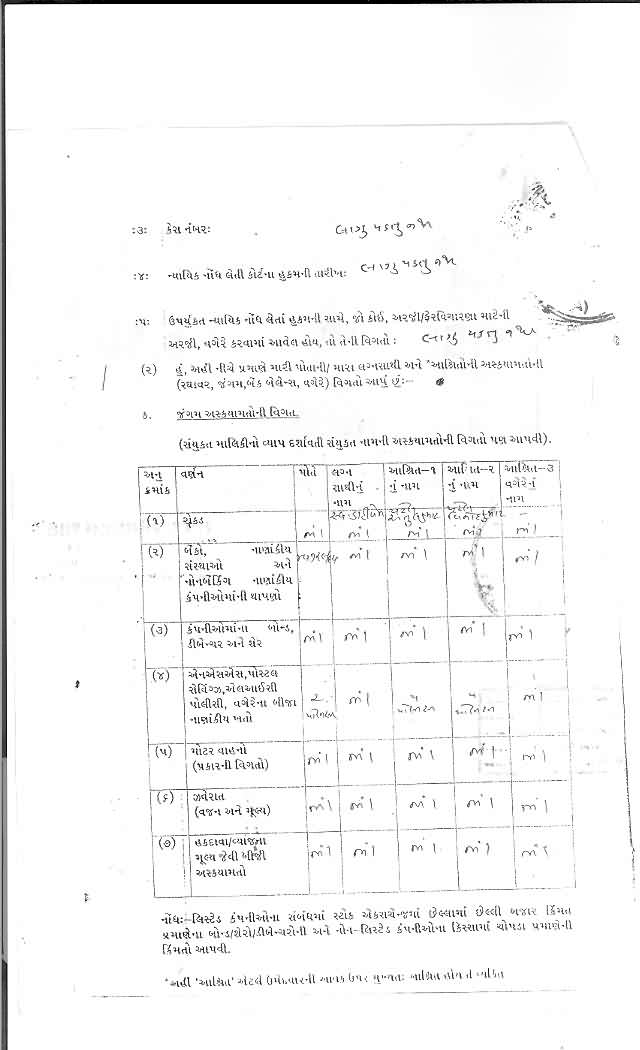 :૩: કેસ નંબર: લાગુ પડતુ નથી
:૪: ન્યાયિક નોંધ લેતી કોર્ટના હુકમની તારીખ: લાગુ પડતુ નથી
:૫: ઉપર્યુકત ન્યાયિક નોંધ લેતાં હુકમની સામે, જો કોઈ, અરજી/ફેરવિચારણા માટેની
અરજી, વગેરે કરવામાં આવેલ હોય, તો તેની વિગતો : લાગુ પડતુ નથી
(૨) હું, અહીં નીચે પ્રમાણે મારી પોતાની/ મારા લગ્નસાથી અને *આશ્રિતોની અસ્કયામતોની
(સ્થાવર, જંગમ,બેંક બેલેન્સ, વગેરે) વિગતો આપું છું:-
ક. જંગમ અસ્કયામતોની વિગત.
(સંયુકત માલિકીનો વ્યાપ દર્શાવતી સંયુકત નામની અસ્કયામતોની વિગતો પણ આપવી).
અનુ ક્રમાંક વર્ણન પોતે લગ્ન સાથીનું નામ આશ્રિત-૧ નું નામ આશ્રિત-૨ નું નામ આશ્રિત-૩ વગેરેનું નામ
(૧) રોકડ નીલ નીલ નીલ નીલ નીલ
(૨) બેંકો, નાણાંકીય
સંસ્થાઓ અને
નોનબેંકિંગ નાણાંકીય
કંપનીઓમાંની થાપણો નીલ નીલ નીલ નીલ
(૩) કંપનીઓમાંના બોન્ડ,
ડીબેન્ચર અને શેર નીલ નીલ નીલ નીલ નીલ
(૪) એનએસએસ,પોસ્ટલ
સેવિંગ્ઝ,એલઆઈસી
પોલીસી, વગેરેના બીજા
નાણાંકીય ખતો નીલ નીલ
(૫) મોટર વાહનો
(પ્રકારની વિગતો) નીલ નીલ નીલ નીલ નીલ
(૬) ઝવેરાત
(વજન અને મૂલ્ય) નીલ નીલ નીલ નીલ નીલ
(૭) હકદાવા/વ્યાજના
મૂલ્ય જેવી બીજી
અસ્કયામતો નીલ નીલ નીલ નીલ નીલ
નોંધ:-લિસ્ટેડ કંપનીઓના સંબંધમાં સ્ટોક એકસચેન્જમાં છેલ્લામાં છેલ્લી બજાર કિંમત
પ્રમાણેના બોન્ડ/શેરો/ડીબેન્ચરોની અને નોન-લિસ્ટેડ કંપનીઓના કિસ્સામાં ચોપડા પ્રમાણેની
કિંમતો આપવી.
*અહીં 'આશ્રિત' એટલે ઉમેદવારની આવક ઉપર મુખ્યત: આશ્રિત હોય તે વ્યકિત